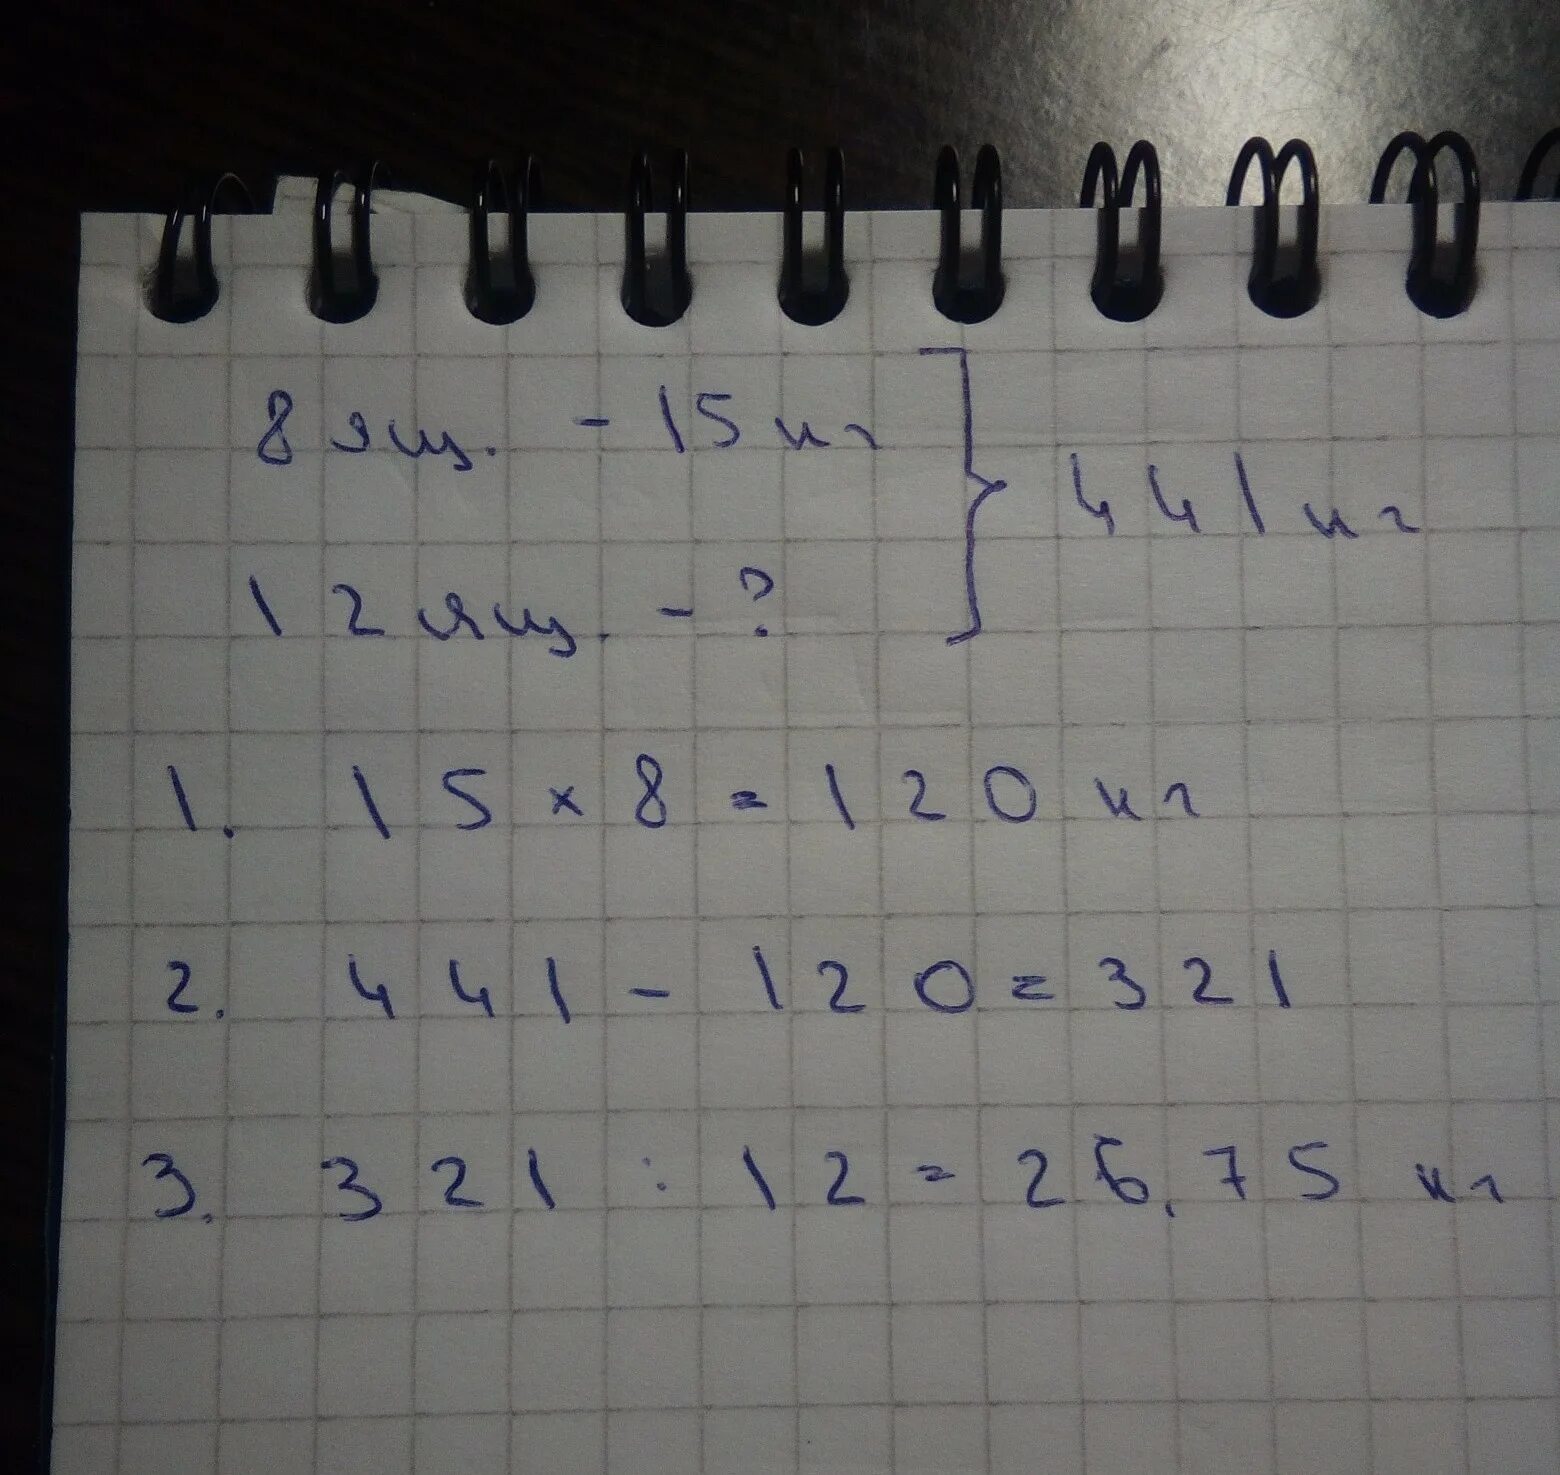 8 ящ. - 15 кг
441 кг
12 ящ. - ?
1. 15 × 8 = 120 кг
2. 441 - 120 = 321
3. 321 : 12 = 26,75 кг